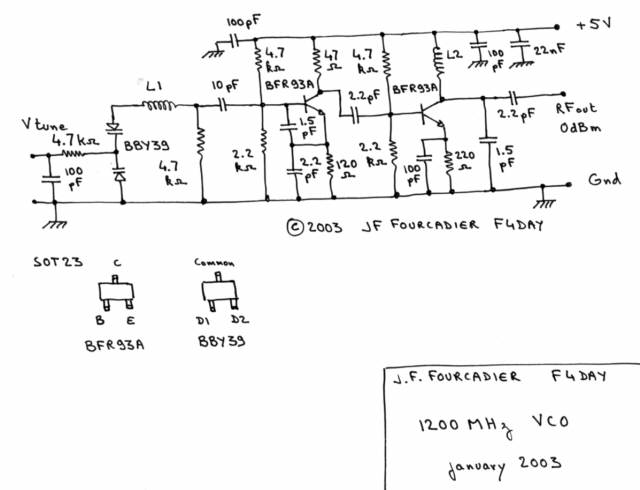 100pF
+5V
4.7 kΩ
47 Ω
4.7 kΩ
L2
100 pF
22nF
L1
10pF
BFR93A
2.2pF
BFR93A
2.2pF
RFout
0dBm
Vtune
4.7kΩ
BBY39
1.5 pF
1.5 pF
100 pF
4.7 kΩ
2.2 kΩ
2.2 pF
120 Ω
2.2 kΩ
100 pF
220 Ω
Gnd
© 2003 JF FOURCADIER F4DAY
SOT23
C
Common
B E
D1 D2
BFR93A
BBY39
J.F. FOURCADIER F4DAY
1200 MHz VCO
january 2003